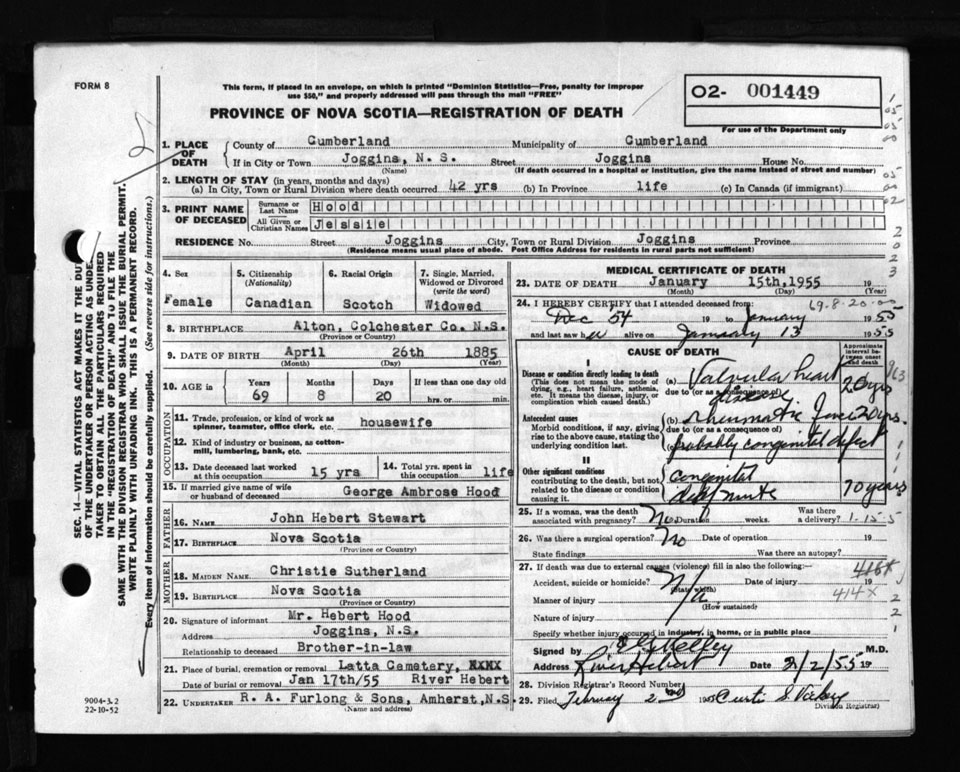 FORM 8
This form, if placed in an envelope, on which is printed "Dominion Statistics—Free, penalty for improper
use $50," and properly addressed will pass through the mail "FREE"
PROVINCE OF NOVA SCOTIA—REGISTRATION OF DEATH
O2- 001449
For use of the Department only
1. PLACE OF DEATH
County of Cumberland Municipality of Cumberland
If in City or Town Joggins, N. S. Street Joggins House No.
(Name) (If death occurred in a hospital or institution, give the name instead of street and number)
2. LENGTH OF STAY (in years, months and days)
(a) In City, Town or Rural Division where death occurred 42 yrs (b) In Province life (c) In Canada (if immigrant)
3. PRINT NAME OF DECEASED
Surname or Last Name Hood
All Given or Christian Names Jessie
RESIDENCE No. Street Joggins City, Town or Rural Division Joggins Province
(Residence means usual place of abode. Post Office Address for residents in rural parts not sufficient)
4. Sex
Female
5. Citizenship (Nationality)
Canadian
6. Racial Origin
Scotch
7. Single, Married, Widowed or Divorced (write the word)
Widowed
8. BIRTHPLACE Alton, Colchester Co. N.S.
(Province or Country)
9. DATE OF BIRTH April 26th 1885
(Month) (Day) (Year)
10. AGE in Years Months Days If less than one day old
69 8 20 hrs. or min.
OCCUPATION
11. Trade, profession, or kind of work as spinner, teamster, office clerk, etc. housewife
12. Kind of industry or business, as cotton-mill, lumbering, bank, etc.
13. Date deceased last worked at this occupation 15 yrs 14. Total yrs. spent in this occupation life
15. If married give name of wife or husband of deceased George Ambrose Hood
FATHER
16. NAME John Hebert Stewart
17. BIRTHPLACE Nova Scotia
(Province or Country)
MOTHER
18. MAIDEN NAME Christie Sutherland
19. BIRTHPLACE Nova Scotia
(Province or Country)
20. Signature of informant Mr. Hebert Hood
Address Joggins, N.S.
Relationship to deceased Brother-in-law
21. Place of burial, cremation or removal Latta Cemetery, XXXX
Date of burial or removal Jan 17th/55 River Hebert
22. UNDERTAKER R. A. Furlong & Sons, Amherst, N.S.
(Name and address)
MEDICAL CERTIFICATE OF DEATH
23. DATE OF DEATH January 15th, 1955 19
(Month) (Day)
24. I HEREBY CERTIFY that I attended deceased from: 69-8-20-00
Dec 54 19 to January 1955
and last saw her alive on January 13 1955
CAUSE OF DEATH
Approximate interval between onset and death
I
Disease or condition directly leading to death (a) Valvular heart disease 20 yrs
(This does not mean the mode of dying, e.g., heart failure, asthenia, etc. It means the disease, injury, or complication which caused death.)
due to (or as a consequence of)
Antecedent causes (b) rheumatic fever 20 yrs.
Morbid conditions, if any, giving rise to the above cause, stating the underlying condition last.
due to (or as a consequence of)
probably congenital defect
II
Other significant conditions contributing to the death, but not related to the disease or condition causing it. congenital 70 years
25. If a woman, was the death associated with pregnancy? No Duration weeks. Was there a delivery? 1-15-5
26. Was there a surgical operation? No Date of operation 19
State findings Was there an autopsy?
27. If death was due to external causes (violence) fill in also the following:— 416X
Accident, suicide or homicide? n/a Date of injury 19
(State which) 414X
Manner of injury
(How sustained)
Nature of injury
Specify whether injury occurred in industry, in home, or in public place
Signed by Kelley M.D.
Address River Hebert Date 2/2/55 19
28. Division Registrar's Record Number
29. Filed February 2nd 195 Curtis
Division Registrar)
SEC. 14—VITAL STATISTICS ACT MAKES IT THE DUT
OF THE UNDERTAKER OR PERSON ACTING AS UNDE
TAKER TO OBTAIN ALL THE PARTICULARS REQUIRED
IN THE "REGISTRATION OF DEATH" AND TO FILE THE
SAME WITH THE DIVISION REGISTRAR WHO SHALL ISSUE THE BURIAL PERMIT.
WRITE PLAINLY WITH UNFADING INK. THIS IS A PERMANENT RECORD.
Every item of information should be carefully supplied. (See reverse side for instructions.)
9004-3.2
22-10-52